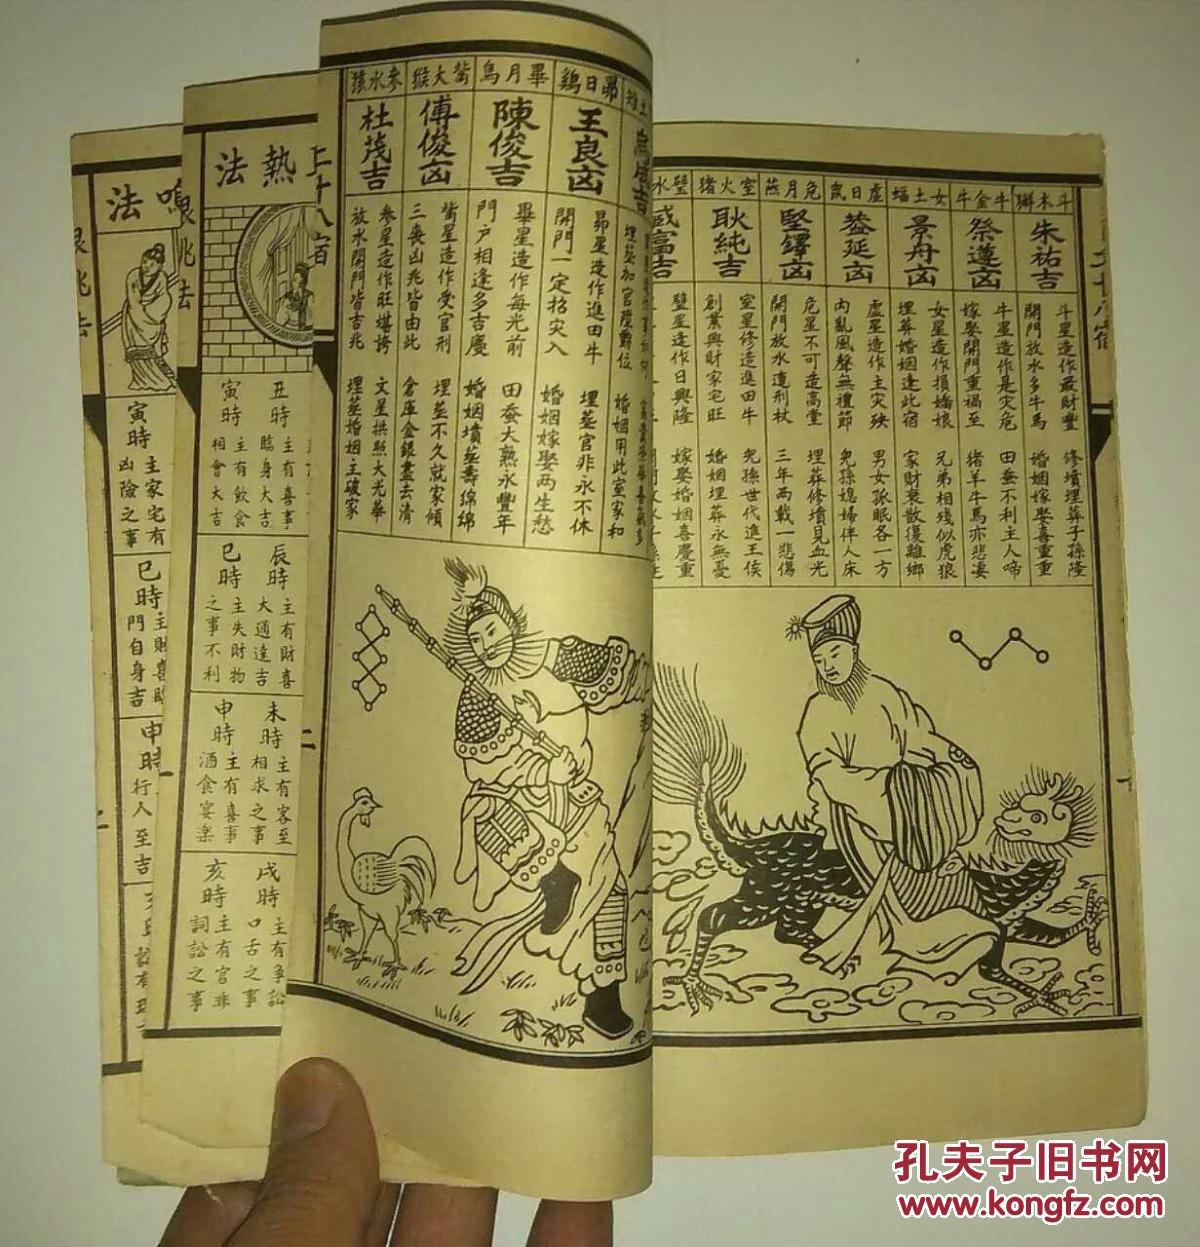 斗木獬
朱祐吉
斗星造作最財豐
開門放水多牛馬
修墳埋葬子孫隆
婚姻嫁娶喜重重
牛金牛
祭遵凶
牛星造作是灾危
嫁娶開門重禍至
田蚕不利主人啼
猪羊牛馬亦悲凄
女土蝠
景丹凶
女星造作損嬌娘
埋葬婚姻逢此宿
兄弟相殘似虎狼
家財衰散復離鄉
虛日鼠
蓋延凶
虛星造作主灾殃
內亂風聲無禮節
男女孤眠各一方
兒孫媳婦伴人床
危月燕
堅鐔凶
危星不可造高堂
開門放水遭刑杖
埋葬修墳見血光
三年两載一悲傷
室火猪
耿純吉
室星修造進田牛
創業興財家宅旺
兒孫世代進王侯
婚姻埋葬永無憂
壁水
臧富吉
壁星造作日興隆
嫁娶婚姻喜慶重
土雉
埋葬加官陞爵位
婚姻用此室家和
昴日鷄
王良凶
昴星造作進田牛
開門一定招灾入
埋葬官非永不休
婚姻嫁娶两生愁
畢月烏
陳俊吉
畢星造作每光前
門户相逢多吉慶
田蚕大熟永豐年
婚姻墳葬壽綿綿
觜火猴
傅俊凶
觜星造作受官刑
三喪凶兆皆由此
埋葬不久就家傾
倉庫金銀盡去清
參水猿
杜茂吉
參星造作旺堪誇
放水開門皆吉兆
文星拱照大光華
埋葬婚姻主破家
熱法
丑時
主有喜事
臨身大吉
寅時
主有飲食
相會大吉
辰時
主有財喜
大通達吉
巳時
主失財物
之事不利
未時
主有客至
相求之事
申時
主有喜事
酒食宴樂
戌時
主有爭訟
口舌之事
亥時
主有官非
詞訟之事
二
鳴法
寅時
主家宅有
凶險之事
巳時
主財喜臨
門自身吉
申時
行人至吉
孔夫子旧书网
www.kongfz.com